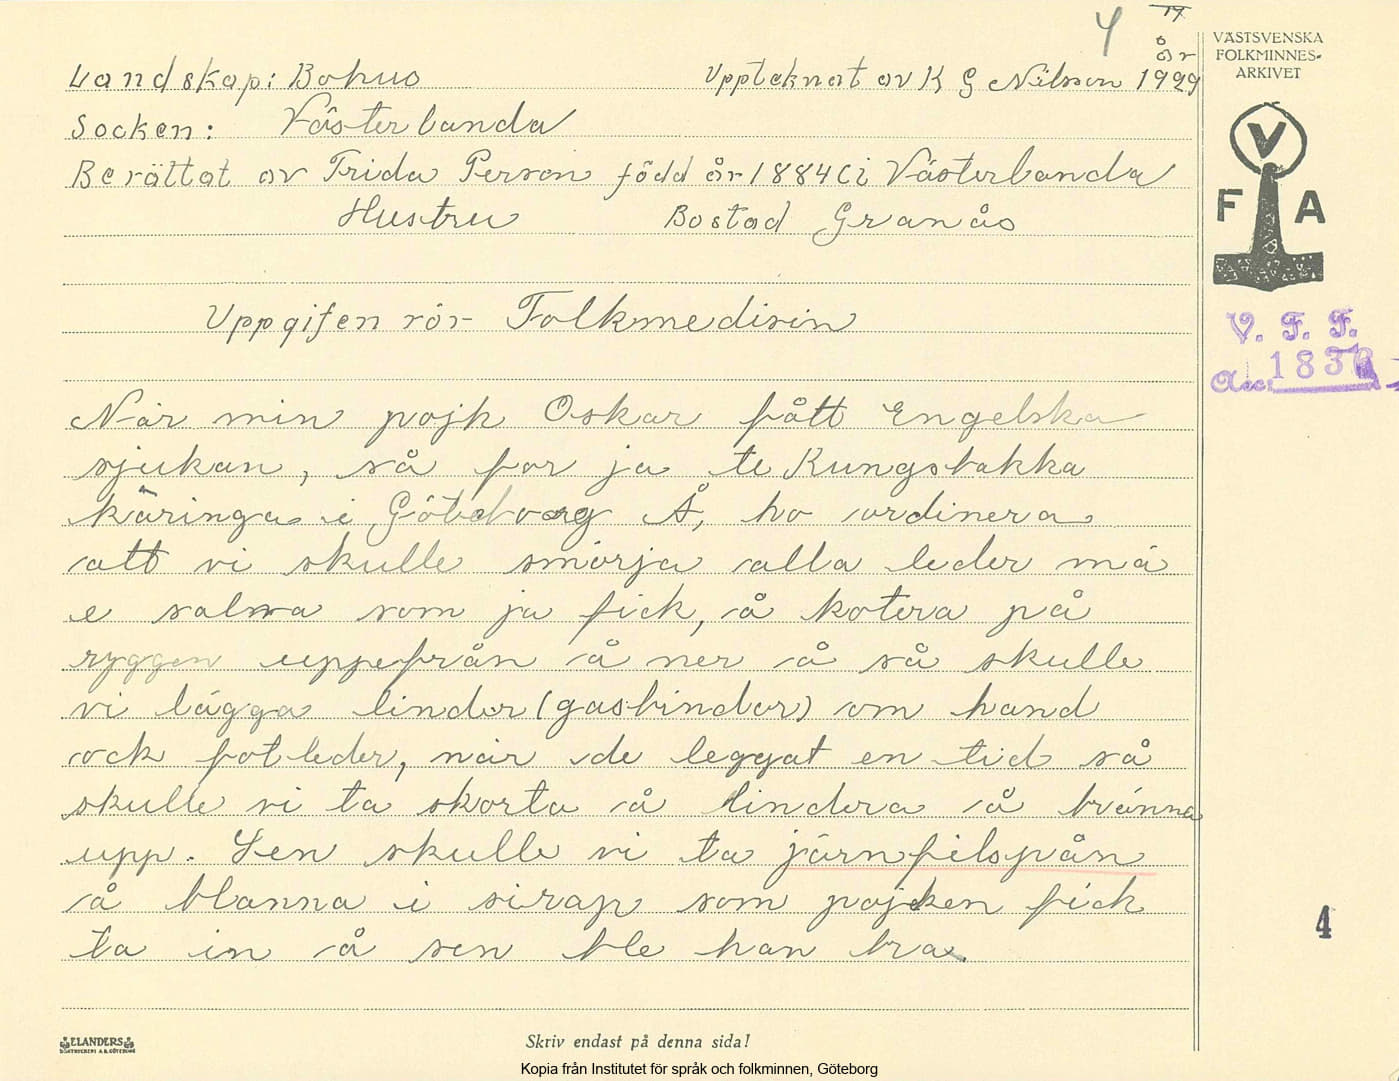 4 14
år
VÄSTSVENSKA
FOLKMINNES-
ARKIVET
Landskap: Bohus Upptcknat av K G Nilsson 1929
Socken: Västerlanda
Berättat av Frida Person född år 1884 i Västerlanda
Hustru Bostad Granås
V
F A
Uppgifen rör Folkmedisin
V. F. F.
Acc. 1836
När min pojk Oskar fått Engelska
sjukan, så for ja te Kungsbakka
käringa i Göteborg Å, ho ordinera
att vi skulle smörja alla leder mä
e salva som ja fick, å kotera på
ryggen uppefrån å ner å så skulle
vi lägga lindor (gasbindor) om hand
ock fotleder, när de leggat en tid så
skulle vi ta skorta å lindera å bränna
upp. Sen skulle vi ta järnfilspån
å blanna i sirap som pojken fick
ta in å sen ble han bra.
4
ELANDERS
BOKTRYCKERI A.B. GÖTEBORG
Skriv endast på denna sida!
Kopia från Institutet för språk och folkminnen, Göteborg